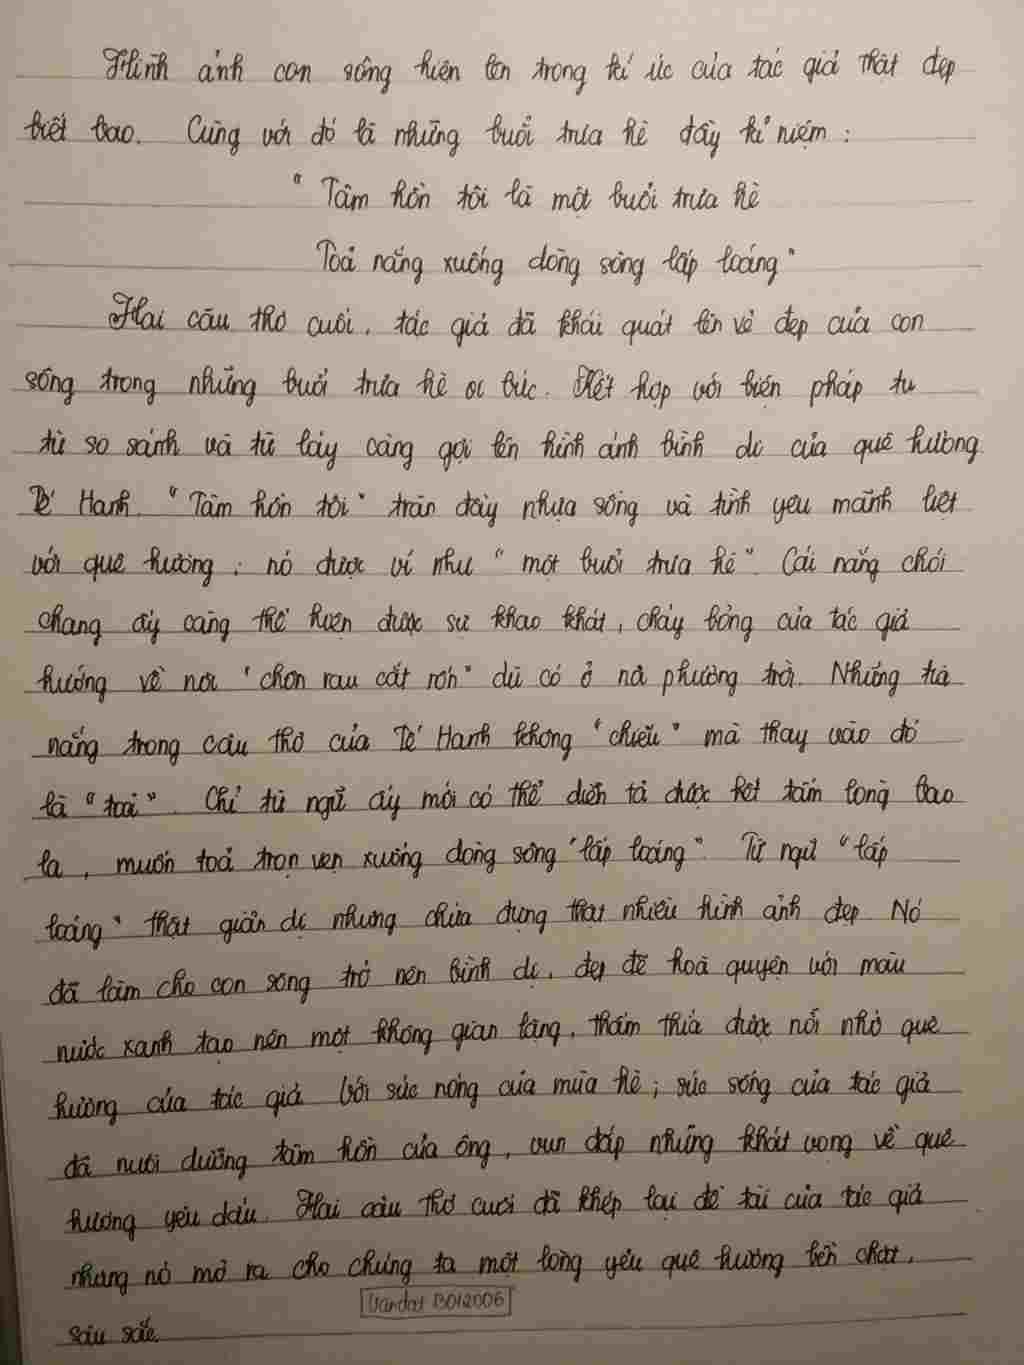 Hình ảnh con sông hiện lên trong kí ức của tác giả thật đẹp
biết bao. Cùng với đó là những buổi trưa hè đầy kỉ niệm :
" Tâm hồn tôi là một buổi trưa hè
Toả nắng xuống dòng sông lấp loáng "
Hai câu thơ cuối, tác giả đã khái quát lên vẻ đẹp của con
sông trong những buổi trưa hè oi bức. Kết hợp với biện pháp tu
từ so sánh và từ láy càng gợi lên hình ảnh bình dị của quê hương
Tế Hanh. " Tâm hồn tôi " tràn đầy nhựa sống và tình yêu mãnh liệt
với quê hương ; nó được ví như " một buổi trưa hè ". Cái nắng chói
chang ấy càng thể hiện được sự khao khát, cháy bỏng của tác giả
hướng về nơi " chôn rau cắt rốn " dù có ở nả phương trời. Những tia
nắng trong câu thơ của Tế Hanh không " chiếu " mà thay vào đó
là " toả ". Chỉ từ ngữ ấy mới có thể diễn tả được hết tấm lòng bao
la, muốn toả trọn vẹn xuống dòng sông "lấp loáng". Từ ngữ " lấp
loáng " thật giản dị nhưng chứa đựng thật nhiều hình ảnh đẹp. Nó
đã làm cho con sông trở nên bình dị, đẹp đẽ hoà quyện với màu
nước xanh tạo nên một không gian lặng, thấm thía được nỗi nhớ quê
hương của tác giả. Với sức nóng của mùa hè ; sức sống của tác giả
đã nuôi dưỡng tâm hồn của ông, vun đắp những khát vọng về quê
hương yêu dấu. Hai câu thơ cuối đã khép lại đề tài của tác giả
nhưng nó mở ra cho chúng ta một lòng yêu quê hương bền chặt,
sâu sắc.
Vandat 13012006